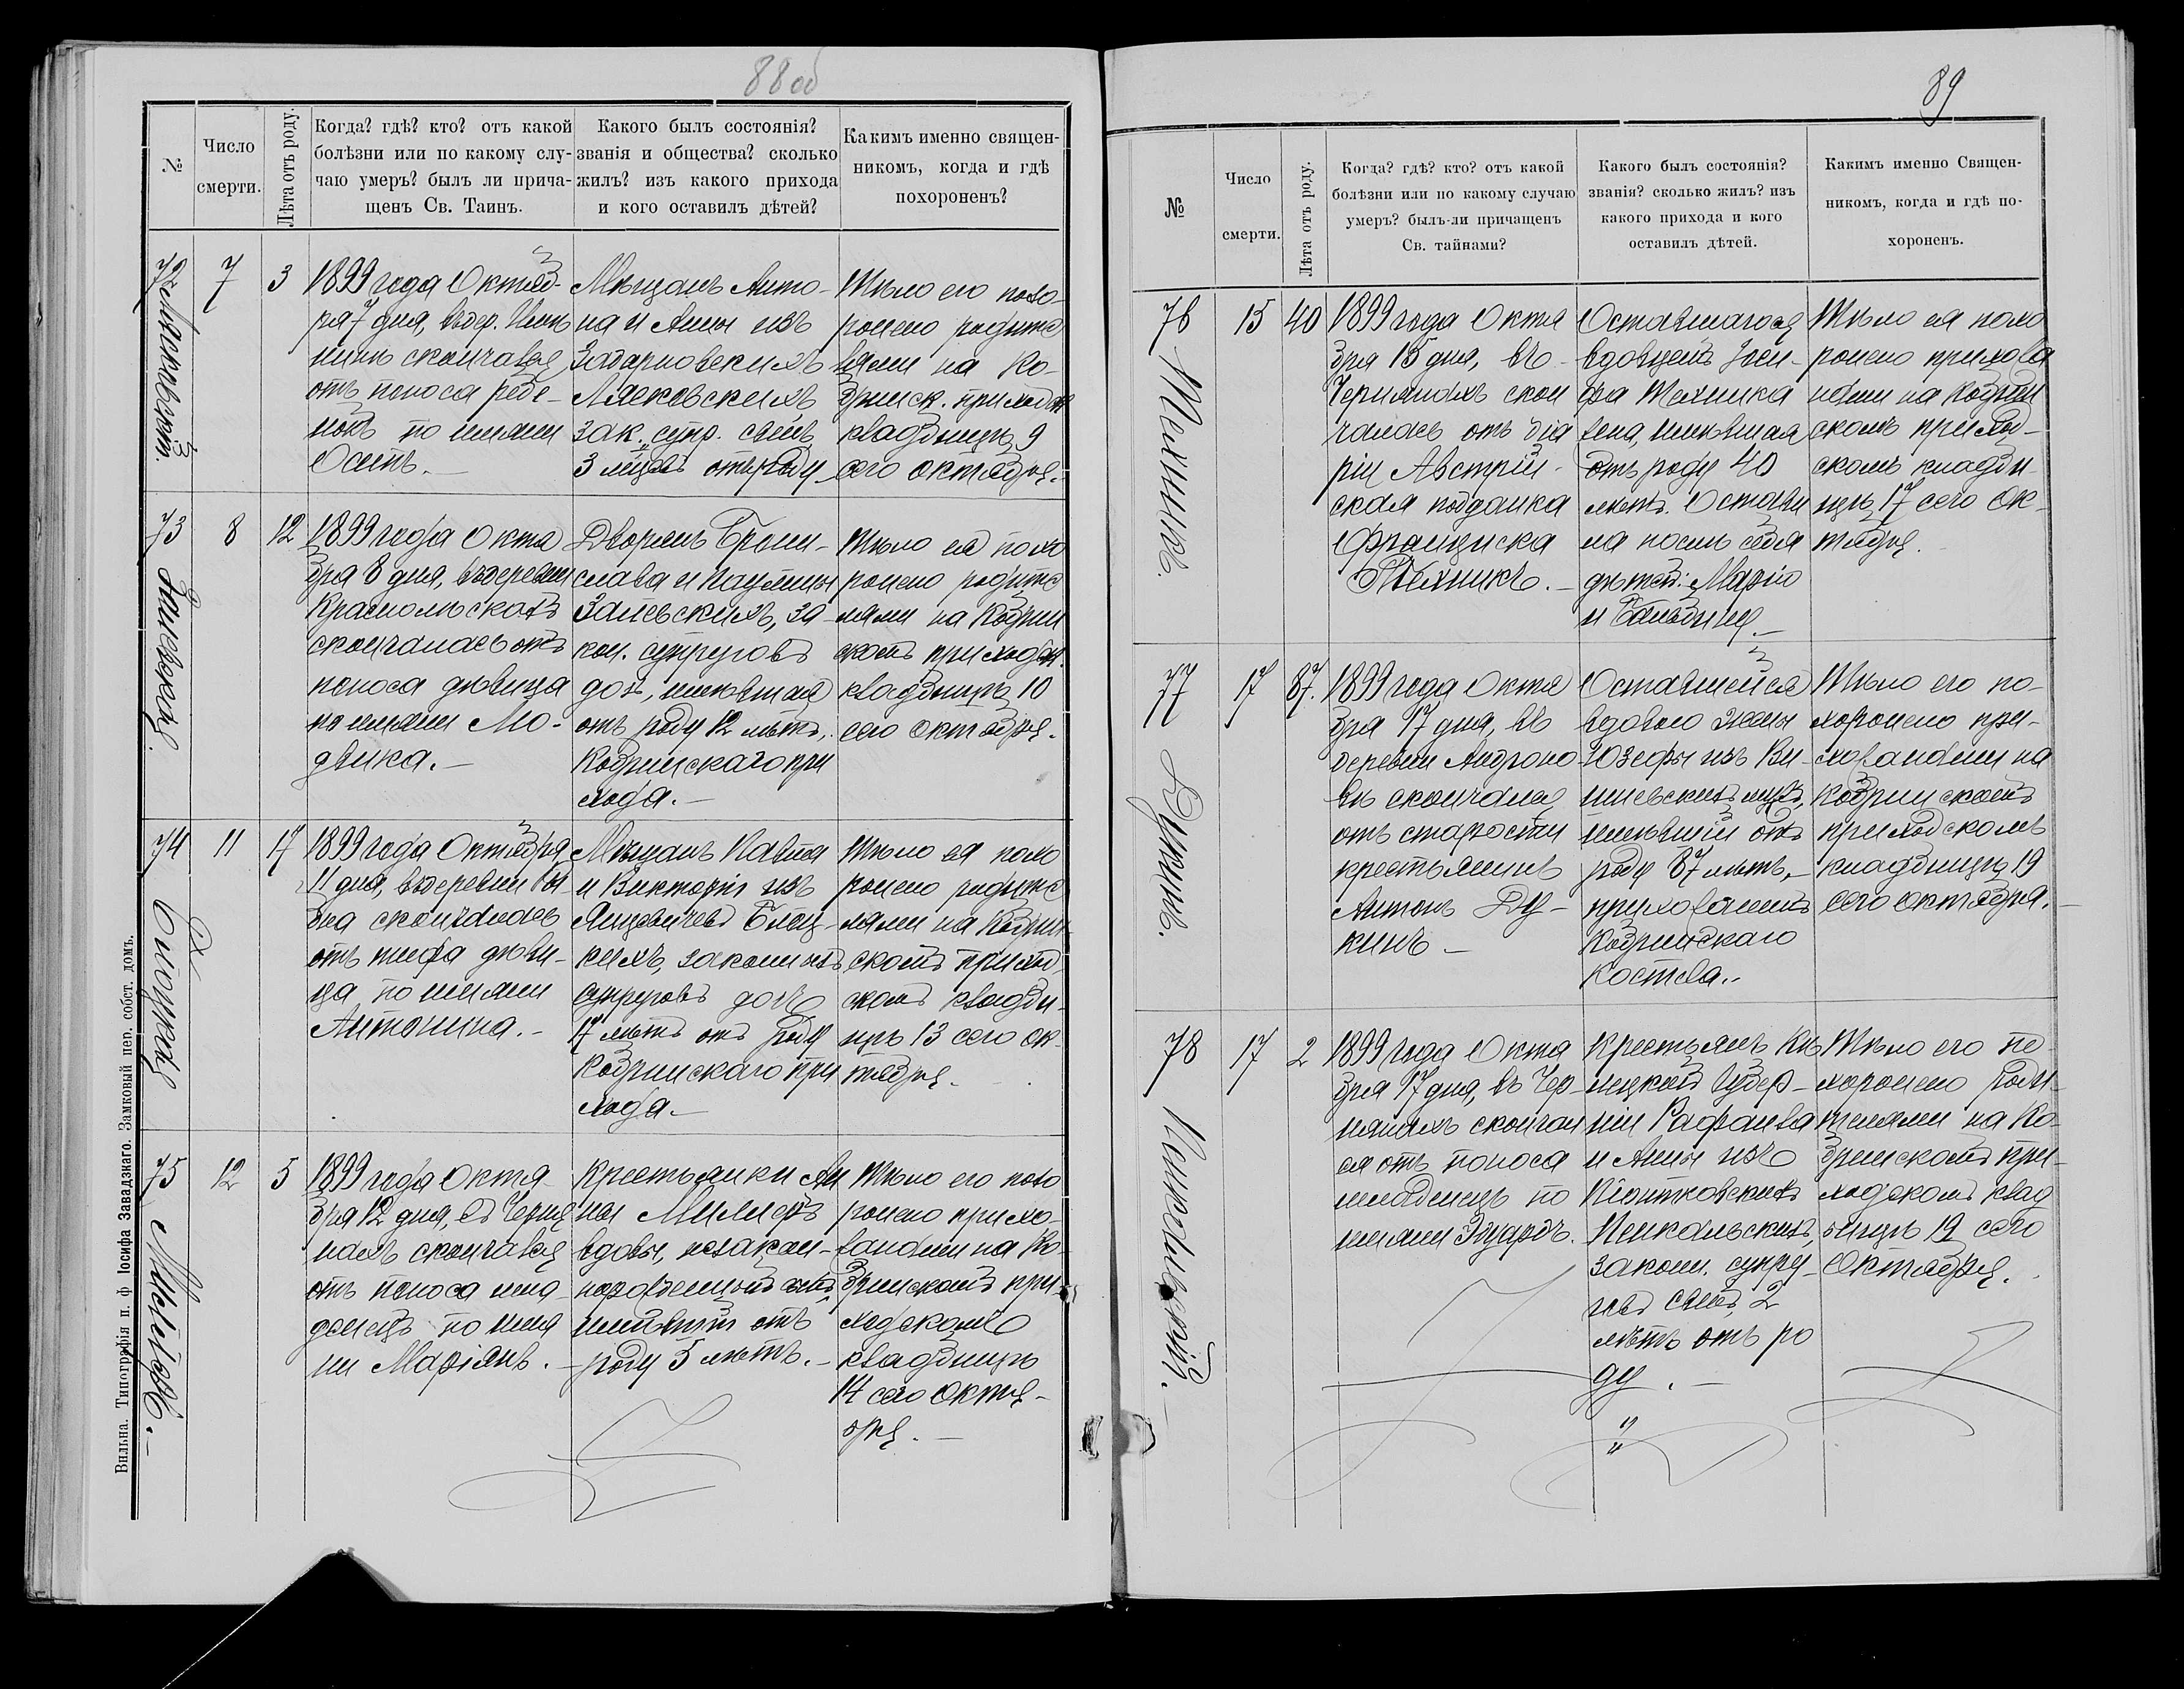 88 об
№
Число
смерти.
Лѣта отъ роду.
Когда? гдѣ? кто? отъ какой
болѣзни или по какому слу-
чаю умеръ? былъ ли прича-
щенъ Св. Таинъ.
Какого былъ состоянія?
званія и общества? сколько
жилъ? изъ какого прихода
и кого оставилъ дѣтей?
Какимъ именно священ-
никомъ, когда и гдѣ
похороненъ?
72
Лясковскій.
7
3
1899 года Октяб-
ря 7 дня, въ дер.
скончался
отъ поноса ребе-
нокъ по имени
Осипъ.
Мѣщанъ Анто-
на и Анны изъ
Лясковскихъ
зак. супр. сынъ
3 отъ роду
Тѣло его похо-
ронено родите
лями на Ко-
бринск. приходск.
кладбищѣ 9
сего октября.
73
Залевская.
8
12
1899 года Октя
бря 8 дня, въ деревни
скончалась отъ
поноса дѣвица
по имени Мо-
двика.
Дворянъ Брони-
слава и Паулины
Залевскихъ, за-
кон. супруговъ
дочь, имѣвшая
отъ роду 12 лѣтъ,
Кобринскаго при
хода.
Тѣло ея похо
ронено родите
лями на Кобрин
скомъ приходск.
кладбищѣ 10
сего октября.
74
Блоцкая
11
17
1899 года Октября
11 дня, въ деревни
скончалась
отъ тифа дѣви-
ца по имени
Антонина.
Мѣщанъ Павла
и Викторіи изъ
Янцевичевъ Блоц-
кихъ, законныхъ
супруговъ дочь
17 лѣтъ отъ роду
Кобринскаго при
хода.
Тѣло ея похо
ронено родите
лями на Кобрин
скомъ приход-
скомъ кладби-
щѣ 13 сего ок
тября.
75
Миллеръ.
12
5
1899 года Октя
бря 12 дня, въ Черня
нахъ скончался
отъ поноса мла-
денецъ по име
ни Маріянъ.
Крестьянки Ан
ны Миллеръ
вдовы, незакон-
норожденный сынъ,
имѣвшій отъ
роду 5 лѣтъ.
Тѣло его похо
ронено прихо-
жанами на Ко-
бринскомъ при-
ходскомъ
кладбищѣ
14 сего Октя-
бря.
Вильна. Типографія п. ф. Іосифа Завадзкаго. Замковый пер. собст. домъ.
89
№
Число
смерти.
Лѣта отъ роду.
Когда? гдѣ? кто? отъ какой
болѣзни или по какому случаю
умеръ? былъ-ли причащенъ
Св. тайнами?
Какого былъ состоянія?
званія? сколько жилъ? изъ
какого прихода и кого
оставилъ дѣтей.
Какимъ именно Священ-
никомъ, когда и гдѣ по-
хороненъ.
76
Техникъ.
15
40
1899 года Октя
бря 15 дня, въ
Чернянахъ скон
чалась отъ діа
ріи Австрій-
ская подданка
Франциска
Техникъ.
Оставшагося
вдовцемъ Іоси-
фа Техника
жена, имѣвшая
отъ роду 40
лѣтъ. Остави
ла послѣ себя
дѣтей: Марію
и
Тѣло ея похо
ронено прихожа
нами на Кобрин
скомъ приход-
скомъ кладби
щѣ 17 сего Ок-
тября.
77
Дукинъ.
17
87.
1899 года Октя
бря 17 дня, въ
деревни Андроно
въ скончался
отъ старости
крестьянинъ
Антонъ Ду-
кинъ
Оставшейся
вдовою жены
Юзефы изъ Ви-
ниевскихъ мужъ,
имѣвшій отъ
роду 87 лѣтъ,
прихожанинъ
Кобринскаго
костела.
Тѣло его по-
хоронено при-
хожанами на
Кобринскомъ
приходскомъ
кладбищѣ 19
сего октября.
78
Пенкальскій.
17
2
1899 года Октя
бря 17 дня, въ Чер-
нянахъ скончал
ся отъ поноса
младенецъ по
имени Эдуардъ.
Крестьянъ Кѣ
лецкой Губер-
ніи Рафаила
и Анны изъ
Піонтковскихъ
Пенкальскихъ,
законн. супру-
говъ сынъ, 2
лѣтъ отъ ро
ду.
Тѣло его по
хоронено роди-
телями на Ко-
бринскомъ при-
ходскомъ клад
бищѣ 19 сего
Октября.